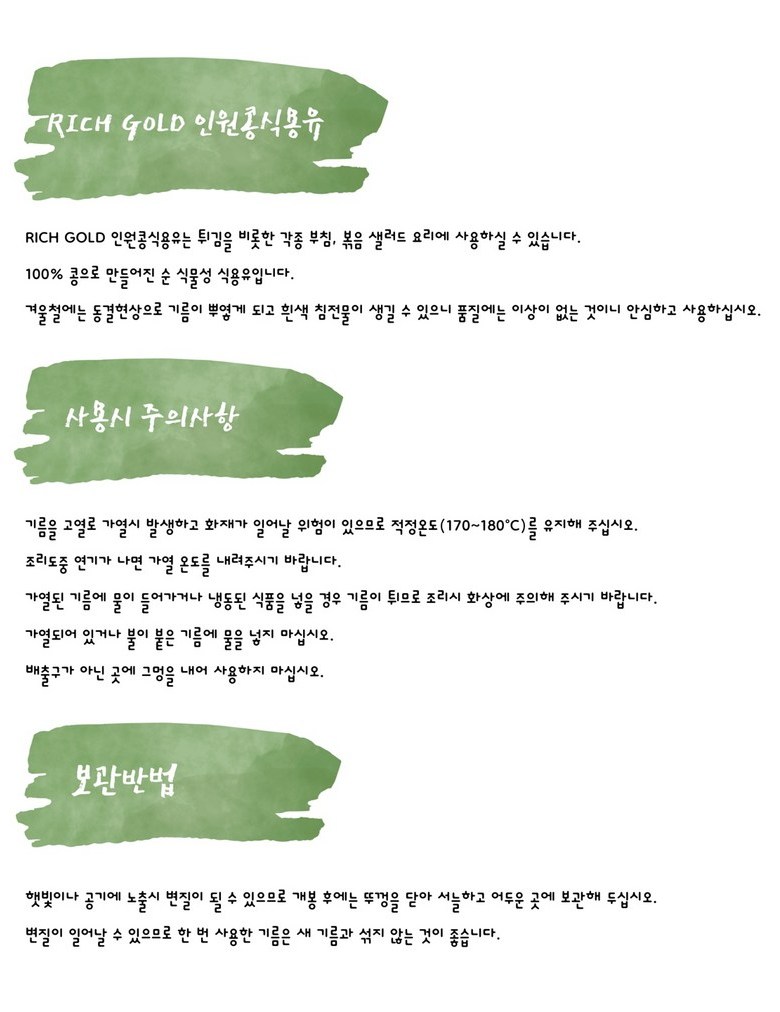 RICH GOLD 인원콩식용유
RICH GOLD 인원콩식용유는 튀김을 비롯한 각종 부침, 볶음 샐러드 요리에 사용하실 수 있습니다.
100% 콩으로 만들어진 순 식물성 식용유입니다.
겨울철에는 동결현상으로 기름이 뿌옇게 되고 흰색 침전물이 생길 수 있으니 품질에는 이상이 없는 것이니 안심하고 사용하십시오.
사용시 주의사항
기름을 고열로 가열시 발생하고 화재가 일어날 위험이 있으므로 적정온도(170~180°C)를 유지해 주십시오.
조리도중 연기가 나면 가열 온도를 내려주시기 바랍니다.
가열된 기름에 물이 들어가거나 냉동된 식품을 넣을 경우 기름이 튀므로 조리시 화상에 주의해 주시기 바랍니다.
가열되어 있거나 불이 붙은 기름에 물을 넣지 마십시오.
배출구가 아닌 곳에 그멍을 내어 사용하지 마십시오.
보관반법
햇빛이나 공기에 노출시 변질이 될 수 있으므로 개봉 후에는 뚜껑을 닫아 서늘하고 어두운 곳에 보관해 두십시오.
변질이 일어날 수 있으므로 한 번 사용한 기름은 새 기름과 섞지 않는 것이 좋습니다.